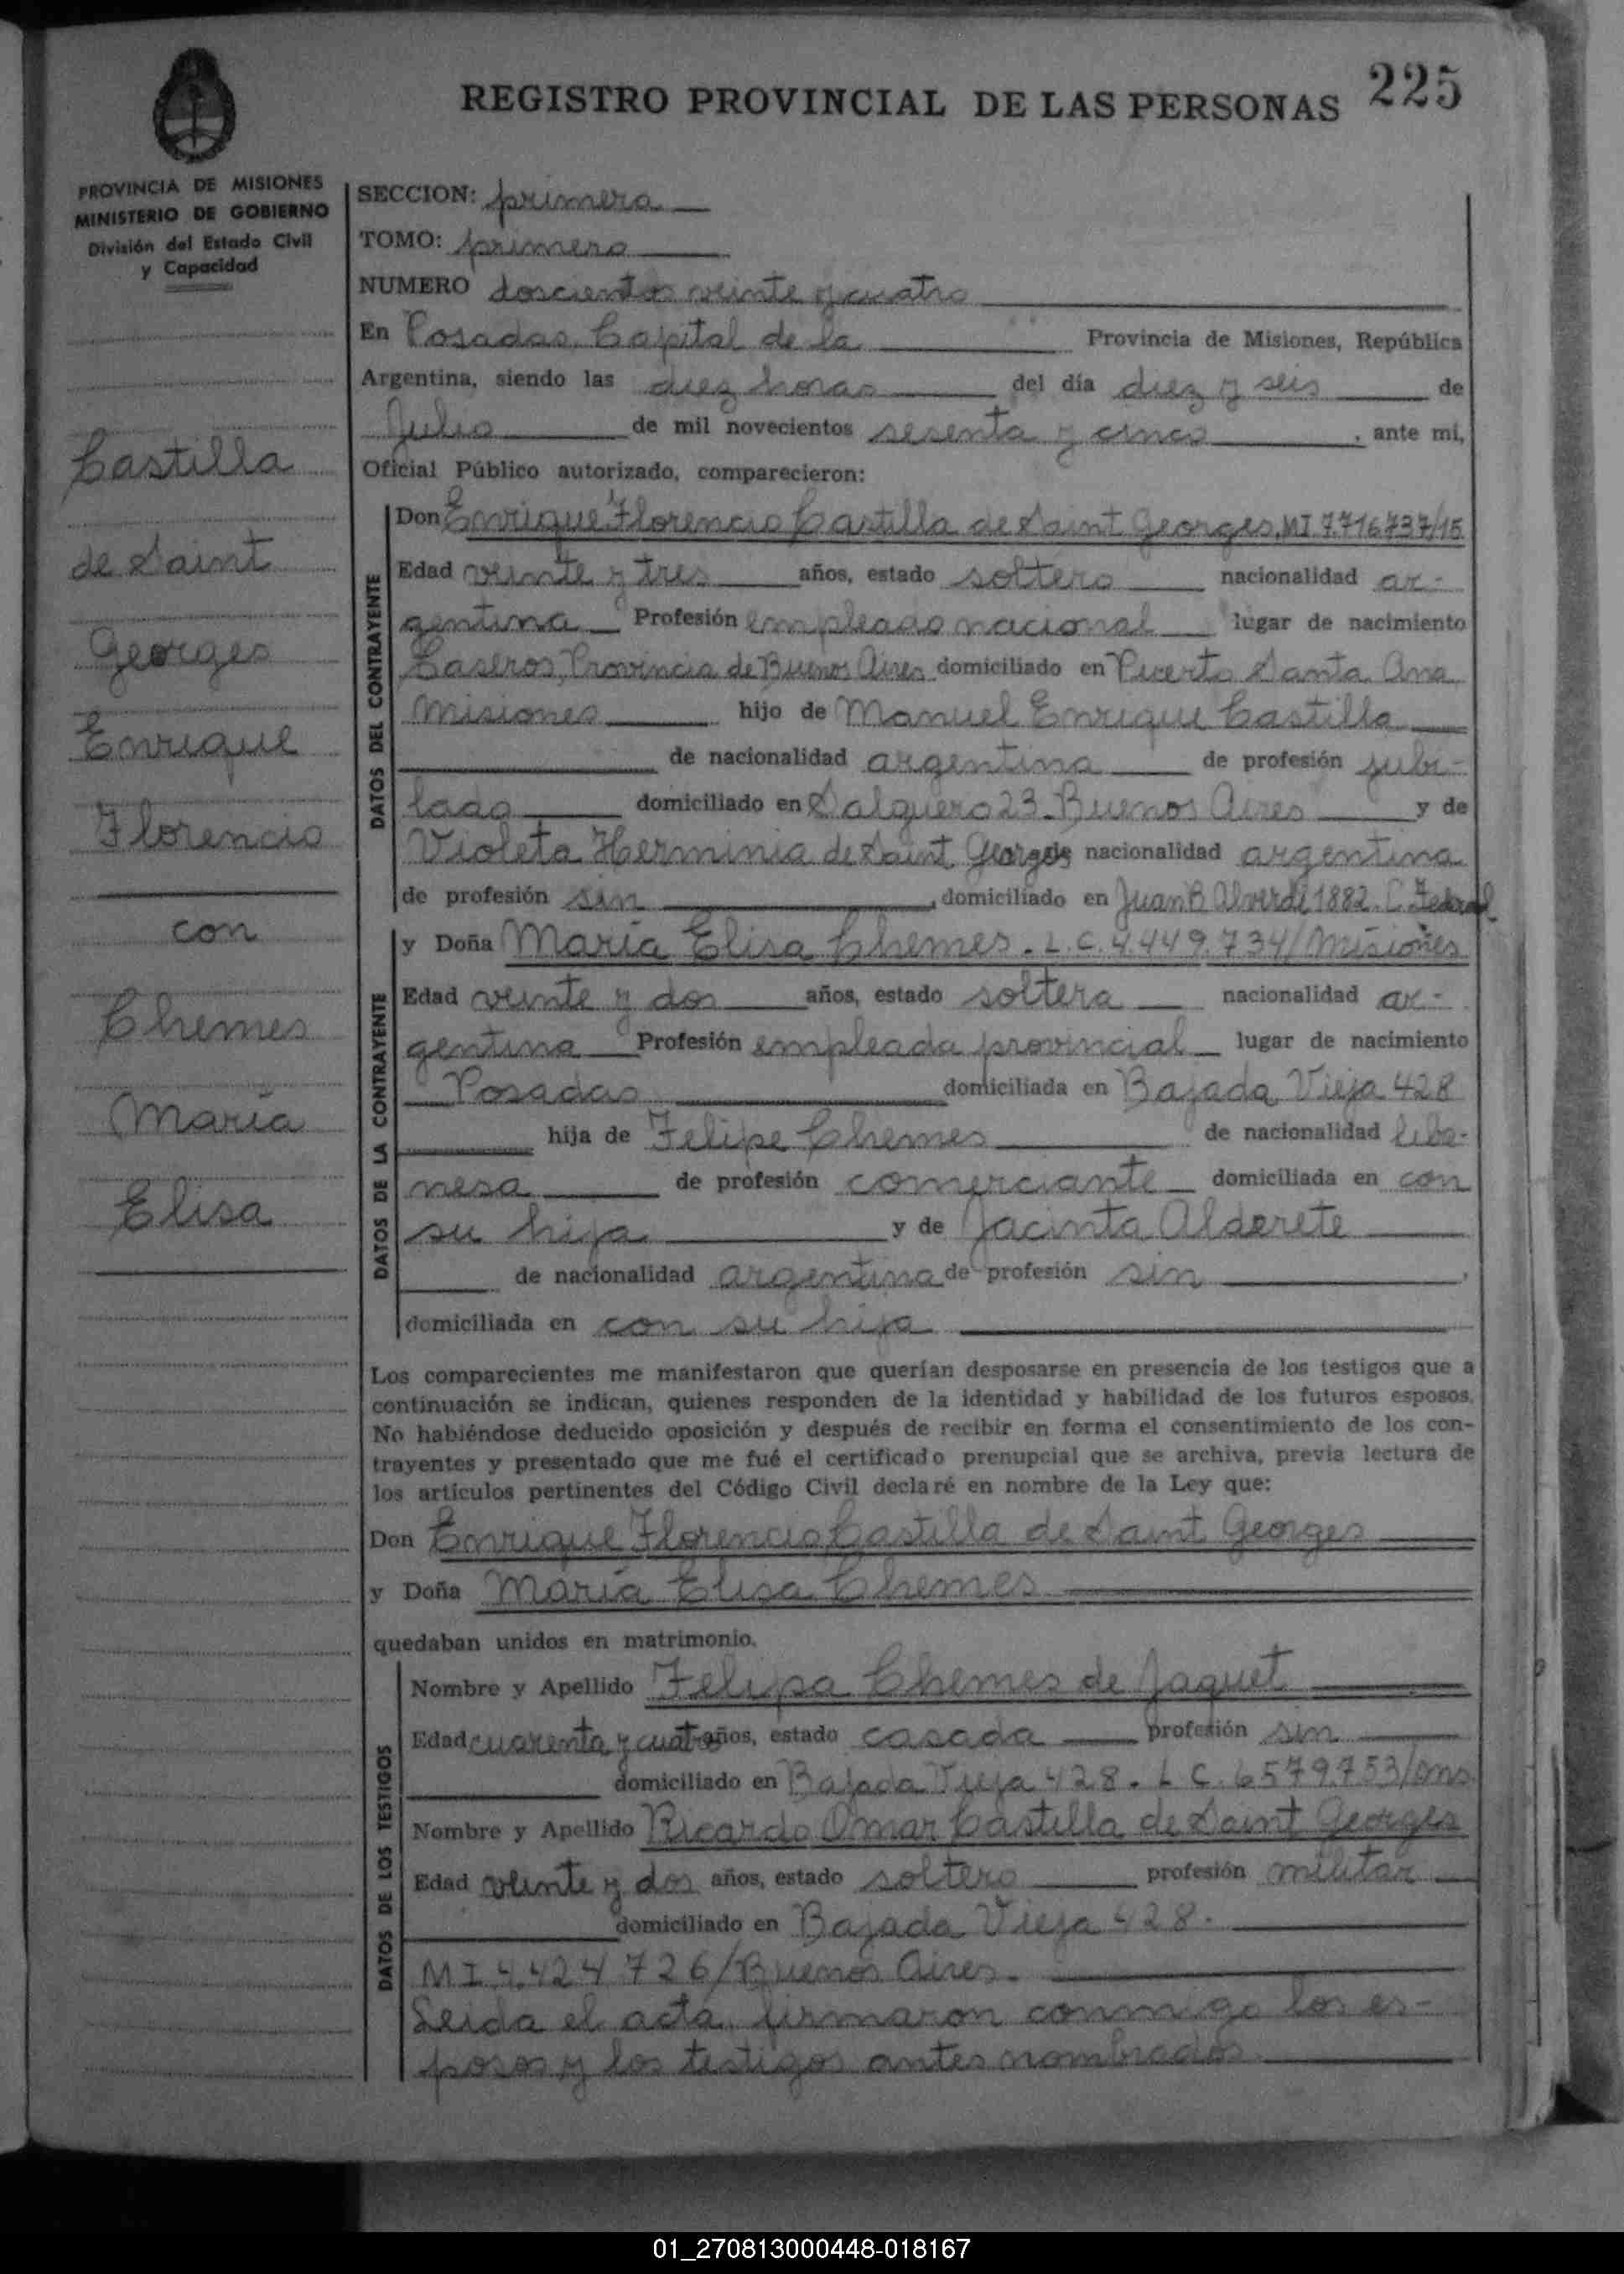 REGISTRO PROVINCIAL DE LAS PERSONAS 225
PROVINCIA DE MISIONES
MINISTERIO DE GOBIERNO
División del Estado Civil
y Capacidad
Castilla
de Saint
Georges
Enrique
Florencio
con
Chemes
María
Elisa
SECCION: primera
TOMO: primero
NUMERO doscientos veinte y cuatro
En Posadas, Capital de la Provincia de Misiones, República
Argentina, siendo las diez horas del día diez y seis de
Julio de mil novecientos sesenta y cinco, ante mí,
Oficial Público autorizado, comparecieron:
DATOS DEL CONTRAYENTE
Don Enrique Florencio Castilla de Saint Georges, MI 7.716737/15
Edad veinte y tres años, estado soltero nacionalidad ar-
gentina Profesión empleado nacional lugar de nacimiento
Caseros, Provincia de Buenos Aires domiciliado en Puerto Santa Ana
Misiones hijo de Manuel Enrique Castilla
de nacionalidad argentina de profesión jubi-
lado domiciliado en Salguero 23. Buenos Aires y de
Violeta Herminia de Saint Georges nacionalidad argentina
de profesión sin, domiciliado en Juan B Alverdi 1882. C. Federal
DATOS DE LA CONTRAYENTE
y Doña María Elisa Chemes. L.C. 4.449.734/Misiones
Edad veinte y dos años, estado soltera nacionalidad ar-
gentina Profesión empleada provincial lugar de nacimiento
Posadas domiciliada en Bajada Vieja 428
hija de Felipe Chemes de nacionalidad liba-
nesa de profesión comerciante domiciliada en con
su hija y de Jacinta Alderete
de nacionalidad argentina de profesión sin,
domiciliada en con su hija
Los comparecientes me manifestaron que querían desposarse en presencia de los testigos que a
continuación se indican, quienes responden de la identidad y habilidad de los futuros esposos.
No habiéndose deducido oposición y después de recibir en forma el consentimiento de los con-
trayentes y presentado que me fué el certificado prenupcial que se archiva, previa lectura de
los artículos pertinentes del Código Civil declaré en nombre de la Ley que:
Don Enrique Florencio Castilla de Saint Georges
y Doña María Elisa Chemes
quedaban unidos en matrimonio.
DATOS DE LOS TESTIGOS
Nombre y Apellido Felipa Chemes de Jaquet
Edad cuarenta y cuatro años, estado casada profesión sin
domiciliado en Bajada Vieja 428. L C. 6579.753/
Nombre y Apellido Ricardo Omar Castilla de Saint Georges
Edad veinte y dos años, estado soltero profesión militar
domiciliado en Bajada Vieja 428.
MI 4.424726/Buenos Aires.
Leida el acta, firmaron conmigo los es-
posos y los testigos antes nombrados.
01_270813000448-018167